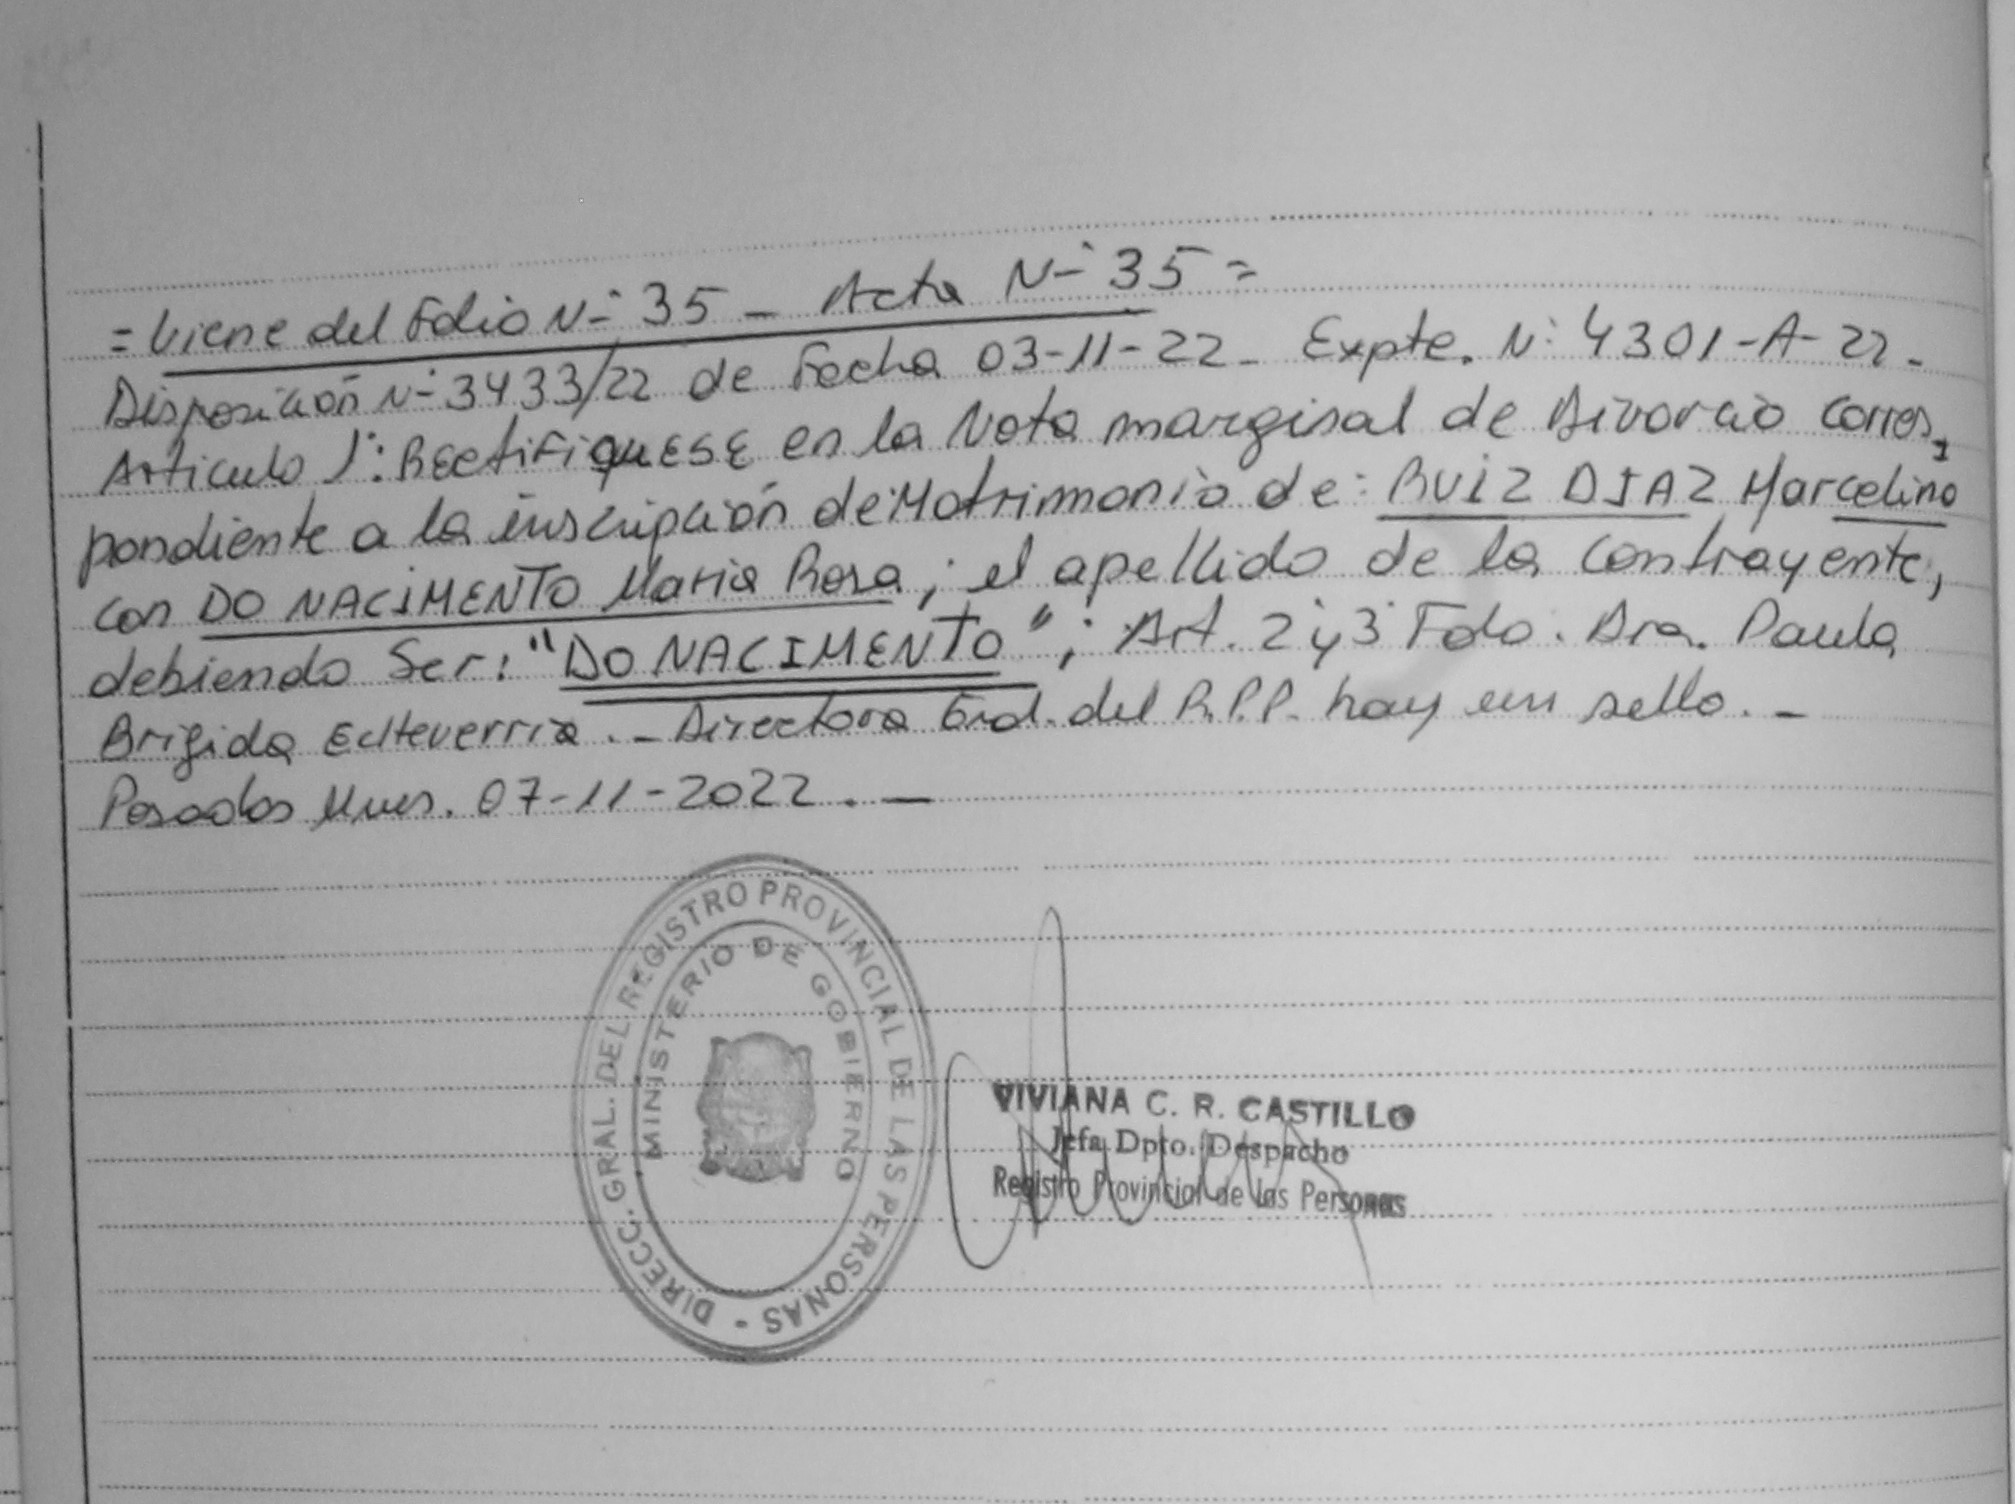 = Viene del Folio N° 35 - Acta N° 35 =
Disposición N° 3433/22 de Fecha 03-11-22 - Expte. N° 4301-A-22 -
Articulo 1°: RECtiFiquESE en la Nota marginal de Divorcio corres,
pondiente a la inscripción de Matrimonio de: RUIZ DIAZ Marcelino
con DO NACIMENTO Maria Rosa; el apellido de la contrayente,
debiendo Ser: "DO NACIMENTO"; Art. 2° y 3° Fdo. Dra. Paula
Brigida Echeverria. - Directora Gral. del R.P.P. hay un sello. -
Posadas Mnes. 07-11-2022. -
DIRECC. GRAL. DEL REGISTRO PROVINCIAL DE LAS PERSONAS -
MINISTERIO DE GOBIERNO
VIVIANA C. R. CASTILLO
Jefa Dpto. Despacho
Registro Provincial de las Personas